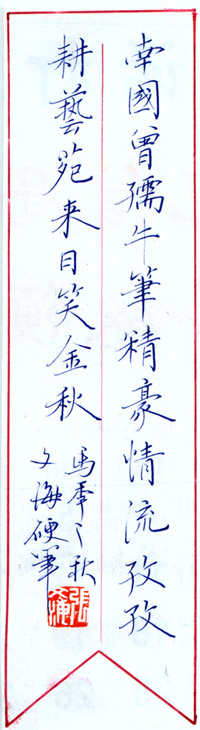 南國曾孺牛筆精豪情流孜孜
耕藝苑来日笑金秋
馬年之秋
文海硬筆